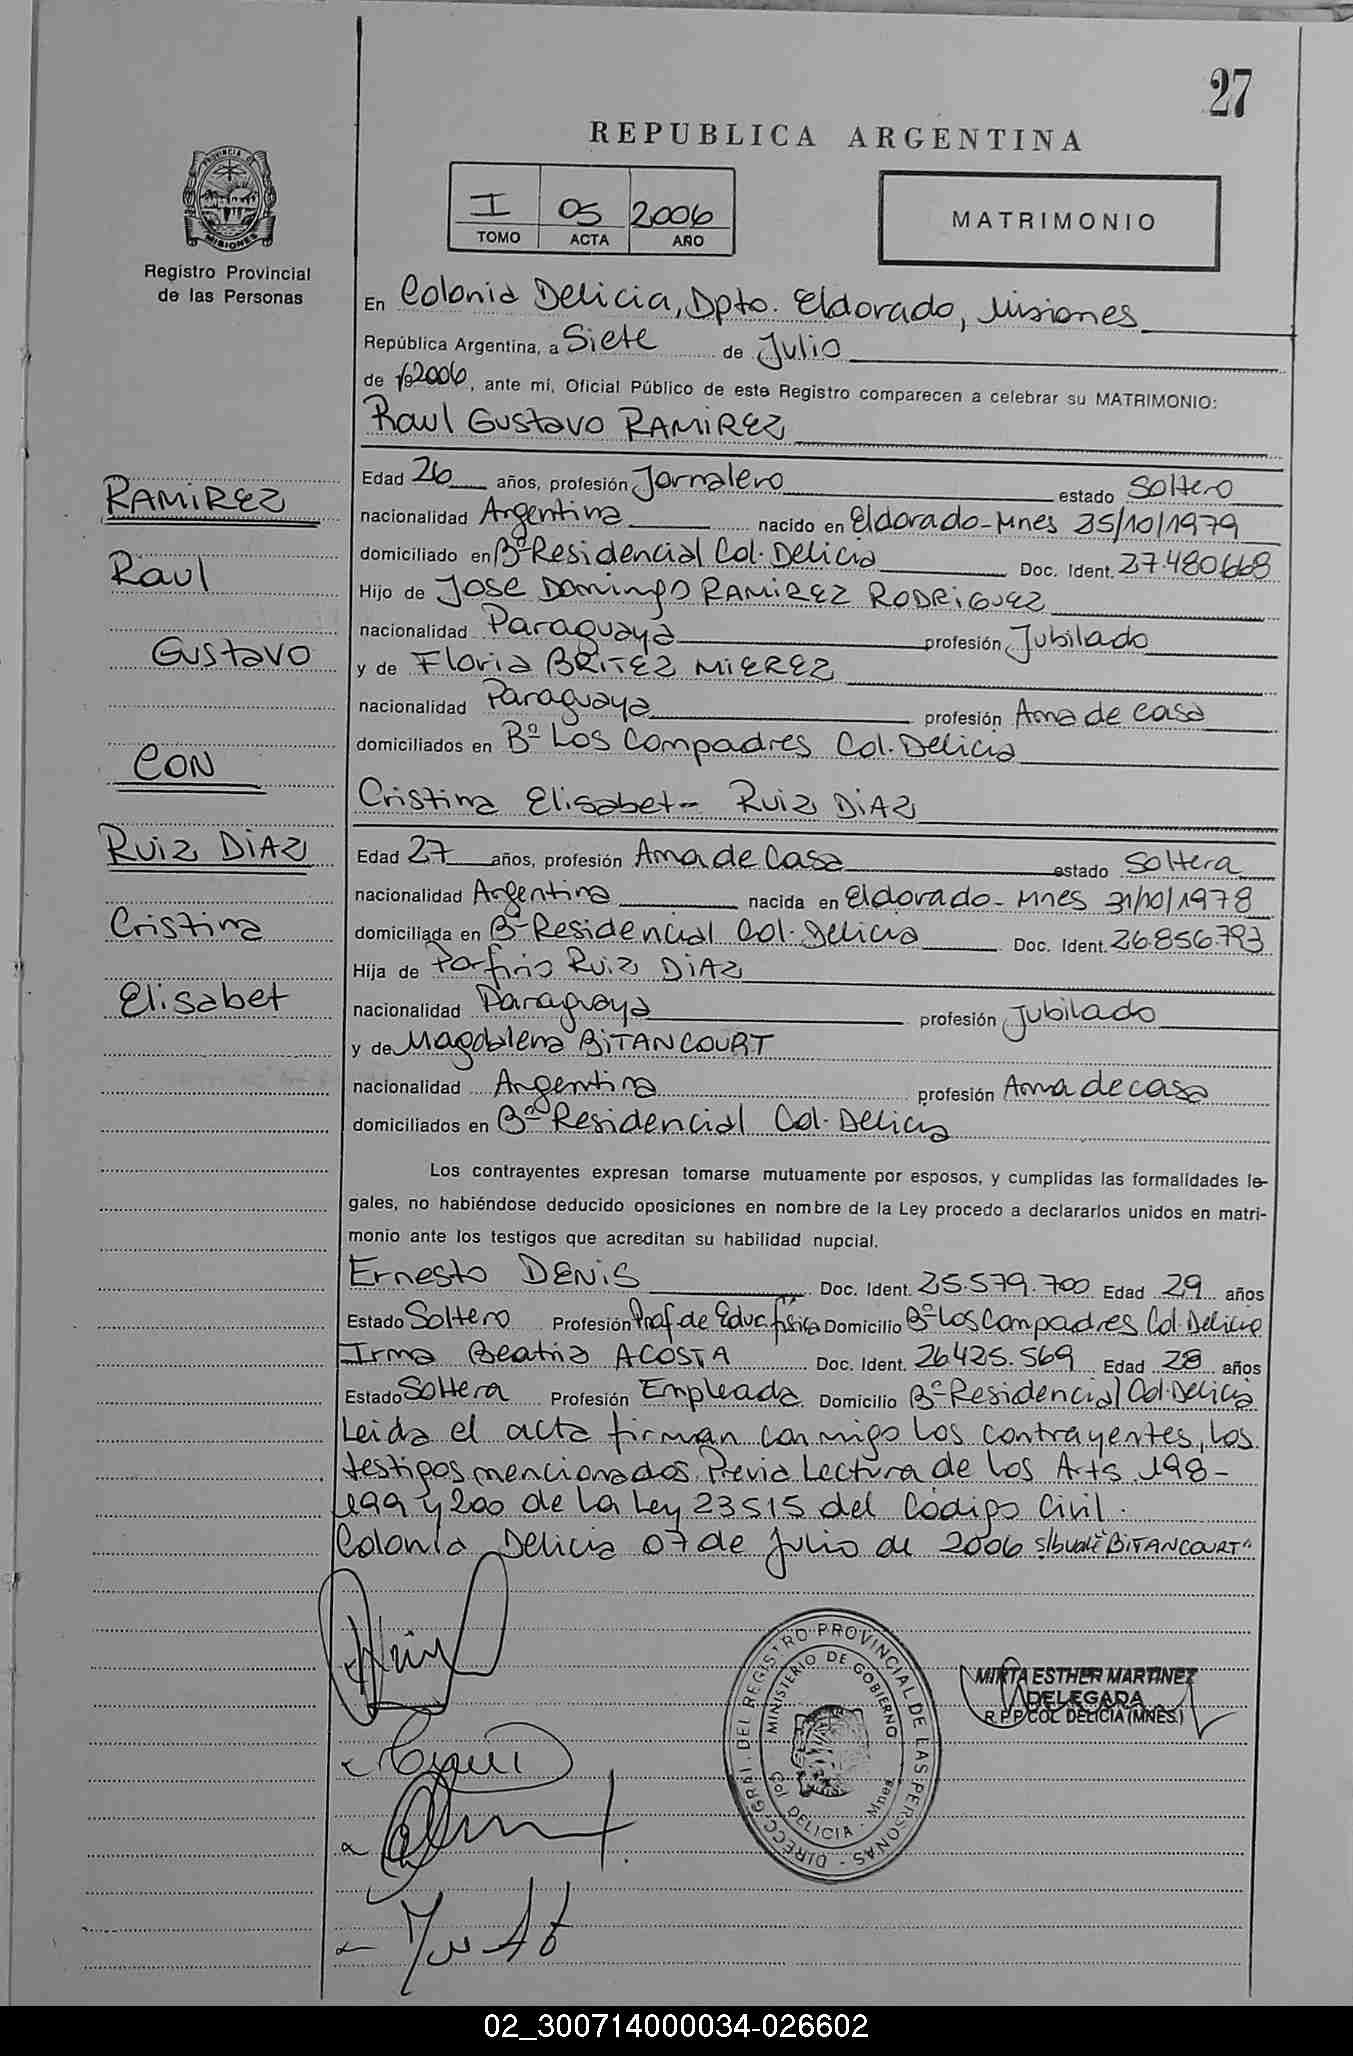 27
REPUBLICA ARGENTINA
PROVINCIA DE
MISIONES
Registro Provincial
de las Personas
I 05 2006
TOMO ACTA AÑO
MATRIMONIO
En Colonia Delicia, Dpto. Eldorado, Misiones
República Argentina, a Siete de Julio
de 2006, ante mí, Oficial Público de este Registro comparecen a celebrar su MATRIMONIO:
Raul Gustavo RAMIREZ
RAMIREZ
Raul
Gustavo
CON
RUIZ DIAZ
Cristina
Elisabet
Edad 26 años, profesión Jornalero estado Soltero
nacionalidad Argentina nacido en Eldorado-Mnes 25/10/1979
domiciliado en Bº Residencial Col. Delicia Doc. Ident. 27.480.668
Hijo de Jose Domingo RAMIREZ RODRIGUEZ
nacionalidad Paraguaya profesión Jubilado
y de Floria BRITEZ MIEREZ
nacionalidad Paraguaya profesión Ama de casa
domiciliados en Bº Los Compadres Col. Delicia
Cristina Elisabet- Ruiz DIAZ
Edad 27 años, profesión Ama de Casa estado Soltera
nacionalidad Argentina nacida en Eldorado- Mnes 31/10/1978
domiciliada en Bº Residencial Col. Delicia Doc. Ident. 26.856.793
Hija de Porfirio Ruiz DIAZ
nacionalidad Paraguaya profesión Jubilado
y de Magdalena BITANCOURT
nacionalidad Argentina profesión Ama de casa
domiciliados en Bº Residencial Col. Delicia
Los contrayentes expresan tomarse mutuamente por esposos, y cumplidas las formalidades le-
gales, no habiéndose deducido oposiciones en nombre de la Ley procedo a declararlos unidos en matri-
monio ante los testigos que acreditan su habilidad nupcial.
Ernesto DENIS Doc. Ident. 25.579.700 Edad 29 años
Estado Soltero Profesión Prof de Educ física Domicilio Bº Los Compadres Col. Delicia
Irma Beatriz ACOSTA Doc. Ident. 26425.569 Edad 28 años
Estado Soltera Profesión Empleada. Domicilio Bº Residencial Col. Delicia
Leida el acta firman conmigo los contrayentes, los
testigos mencionados. Previa Lectura de los Arts. 198-
199 y 200 de la Ley 23515 del Código Civil.
Colonia Delicia 07 de Julio de 2006 "BITANCOURT"
DIRECC. GRAL. DEL REGISTRO PROVINCIAL DE LAS PERSONAS
MINISTERIO DE GOBIERNO
Col. DELICIA - Mnes.
MIRTA ESTHER MARTINEZ
DELEGADA
R.P.P COL DELICIA (MNES.)
02_300714000034-026602